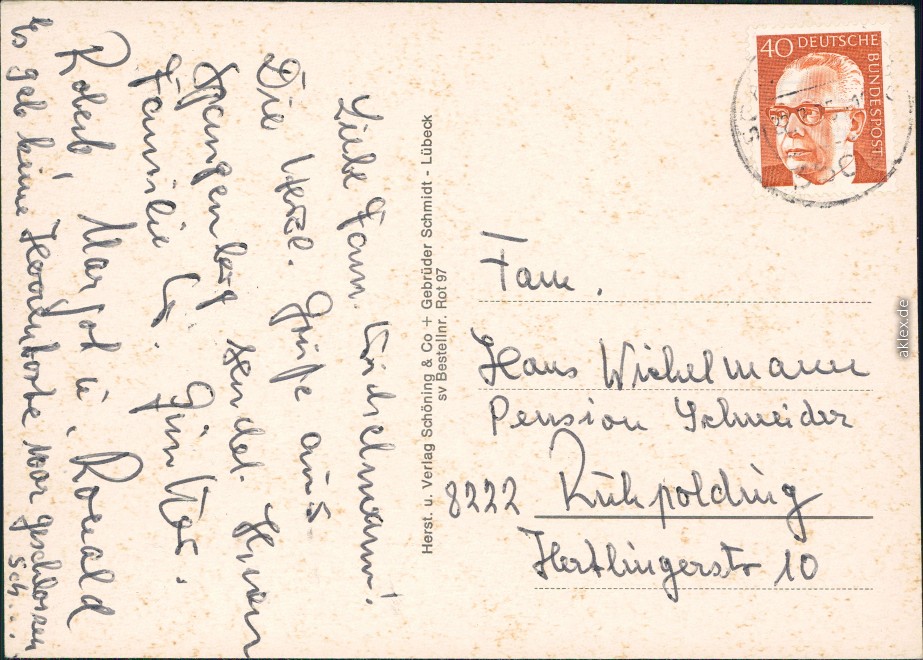 Liebe Fam. Wichelmann!
Die herzl. Grüße aus
Spangenberg sendet Ihnen
Familie G. Günther.
Robert, Margot u. Ronald
Es gab keine Karte war geschlossen
Herst. u. Verlag Schöning & Co + Gebrüder Schmidt - Lübeck
sv Bestellnr. Rot 97
40 DEUTSCHE
BUNDESPOST
Fam.
Hans Wichelmann
Pension Schneider
8222 Ruhpolding
Hertlingerstr 10
aklex.de